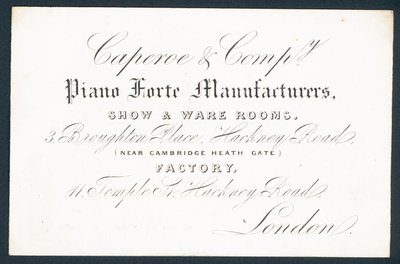 Caperoe & Compy
Piano Forte Manufacturers,
SHOW & WARE ROOMS,
3, Broughton Place, Hackney Road,
(NEAR CAMBRIDGE HEATH GATE)
FACTORY,
11, Temple St. Hackney Road,
London.